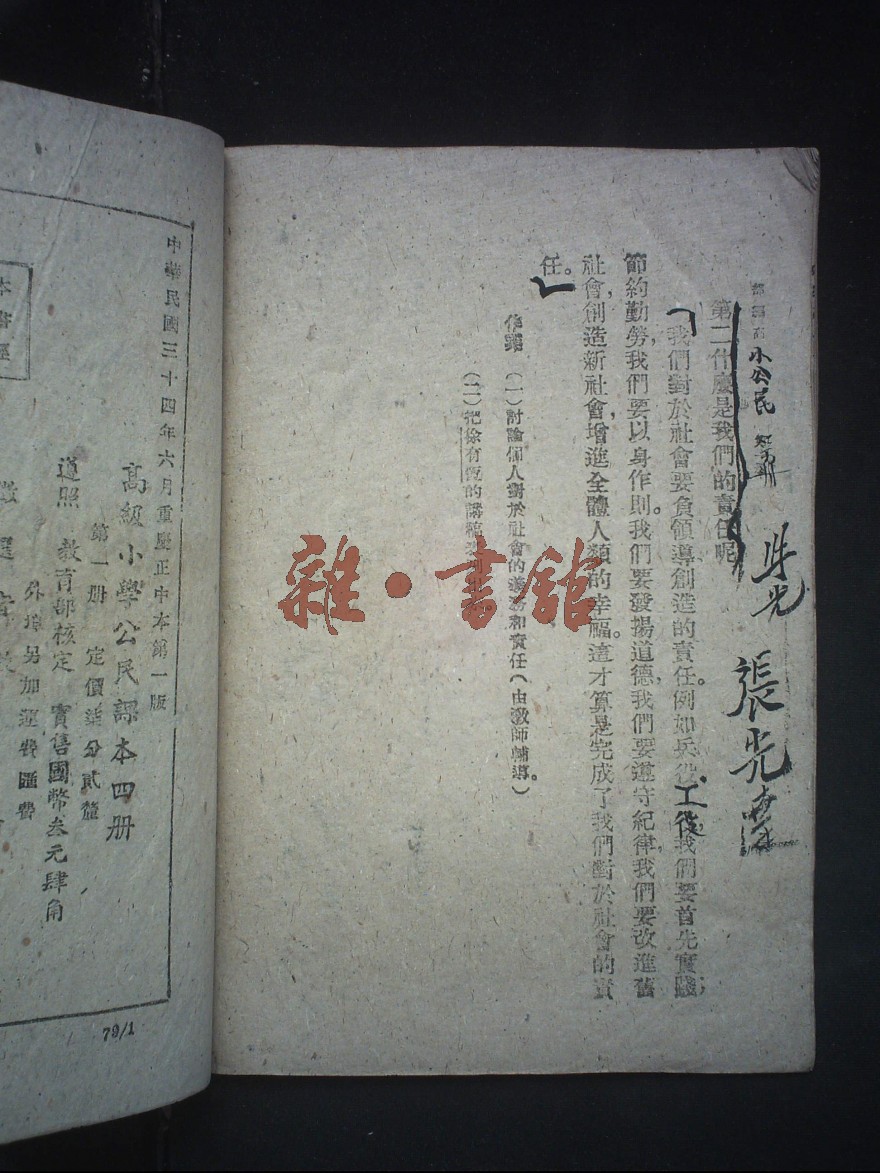 小公民
張光
第二什麼是我們的責任呢
我們對於社會要負領導創造的責任。例如兵役、工役，我們要首先實踐；
節約勤勞，我們要以身作則。我們要發揚道德，我們要遵守紀律，我們要改進舊
社會，創造新社會，增進全體人類的幸福。這才算是完成了我們對於社會的責
任。
作業 （一）討論個人對於社會的義務和責任（由教師輔導。）
（二）把徐有恆的講稿
雜·書館
中華民國三十四年六月重慶正中本第一版
高級小學公民課本四册
第一册 定價 分貳釐
遵照 教育部核定 實售國幣叁元肆角
外埠另加運費匯費
本書
79/1